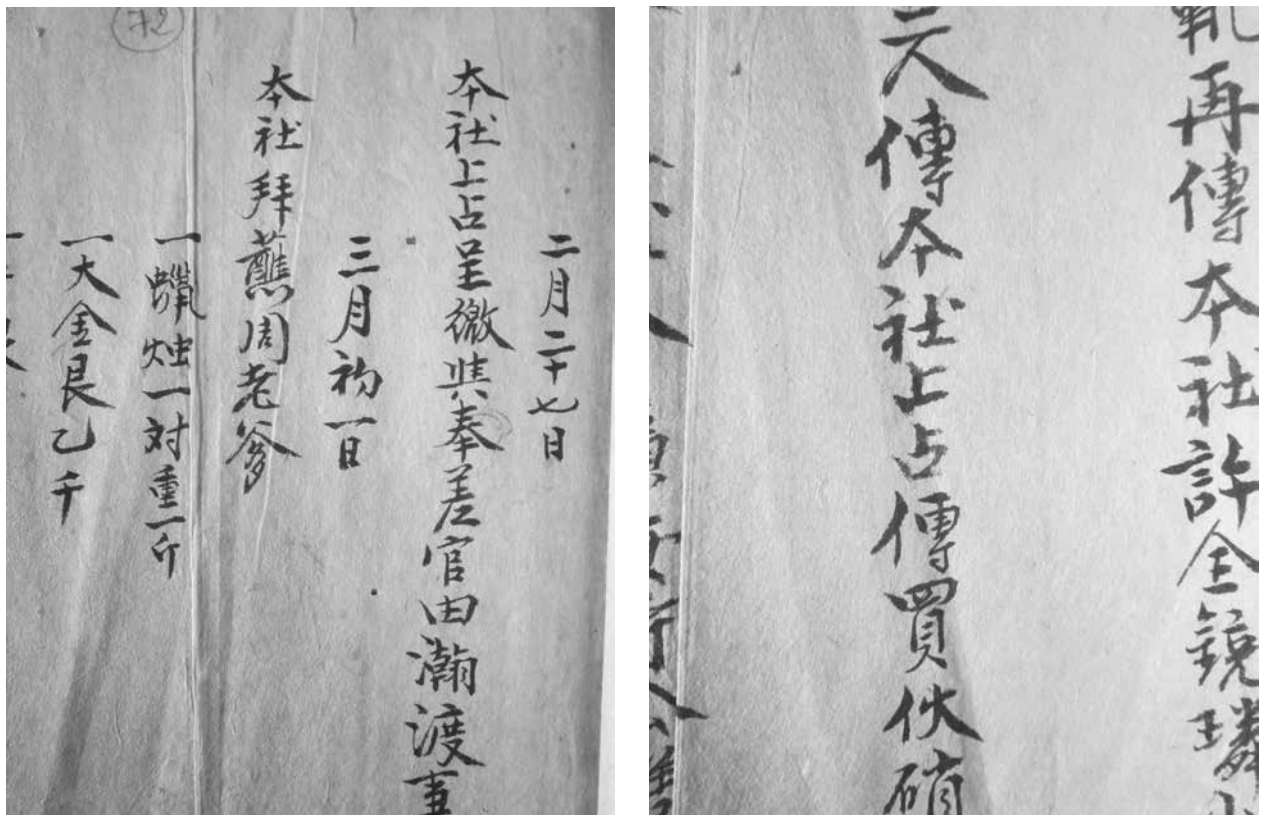 72
二月二十七日
本社上占呈繳 奉差官由瀚渡事
三月初一日
本社拜蘸周老爹
一蠟烛一対重一斤
一大金艮乙千
再傳本社許全鏡璘
二人傳本社上占傳買伙硝